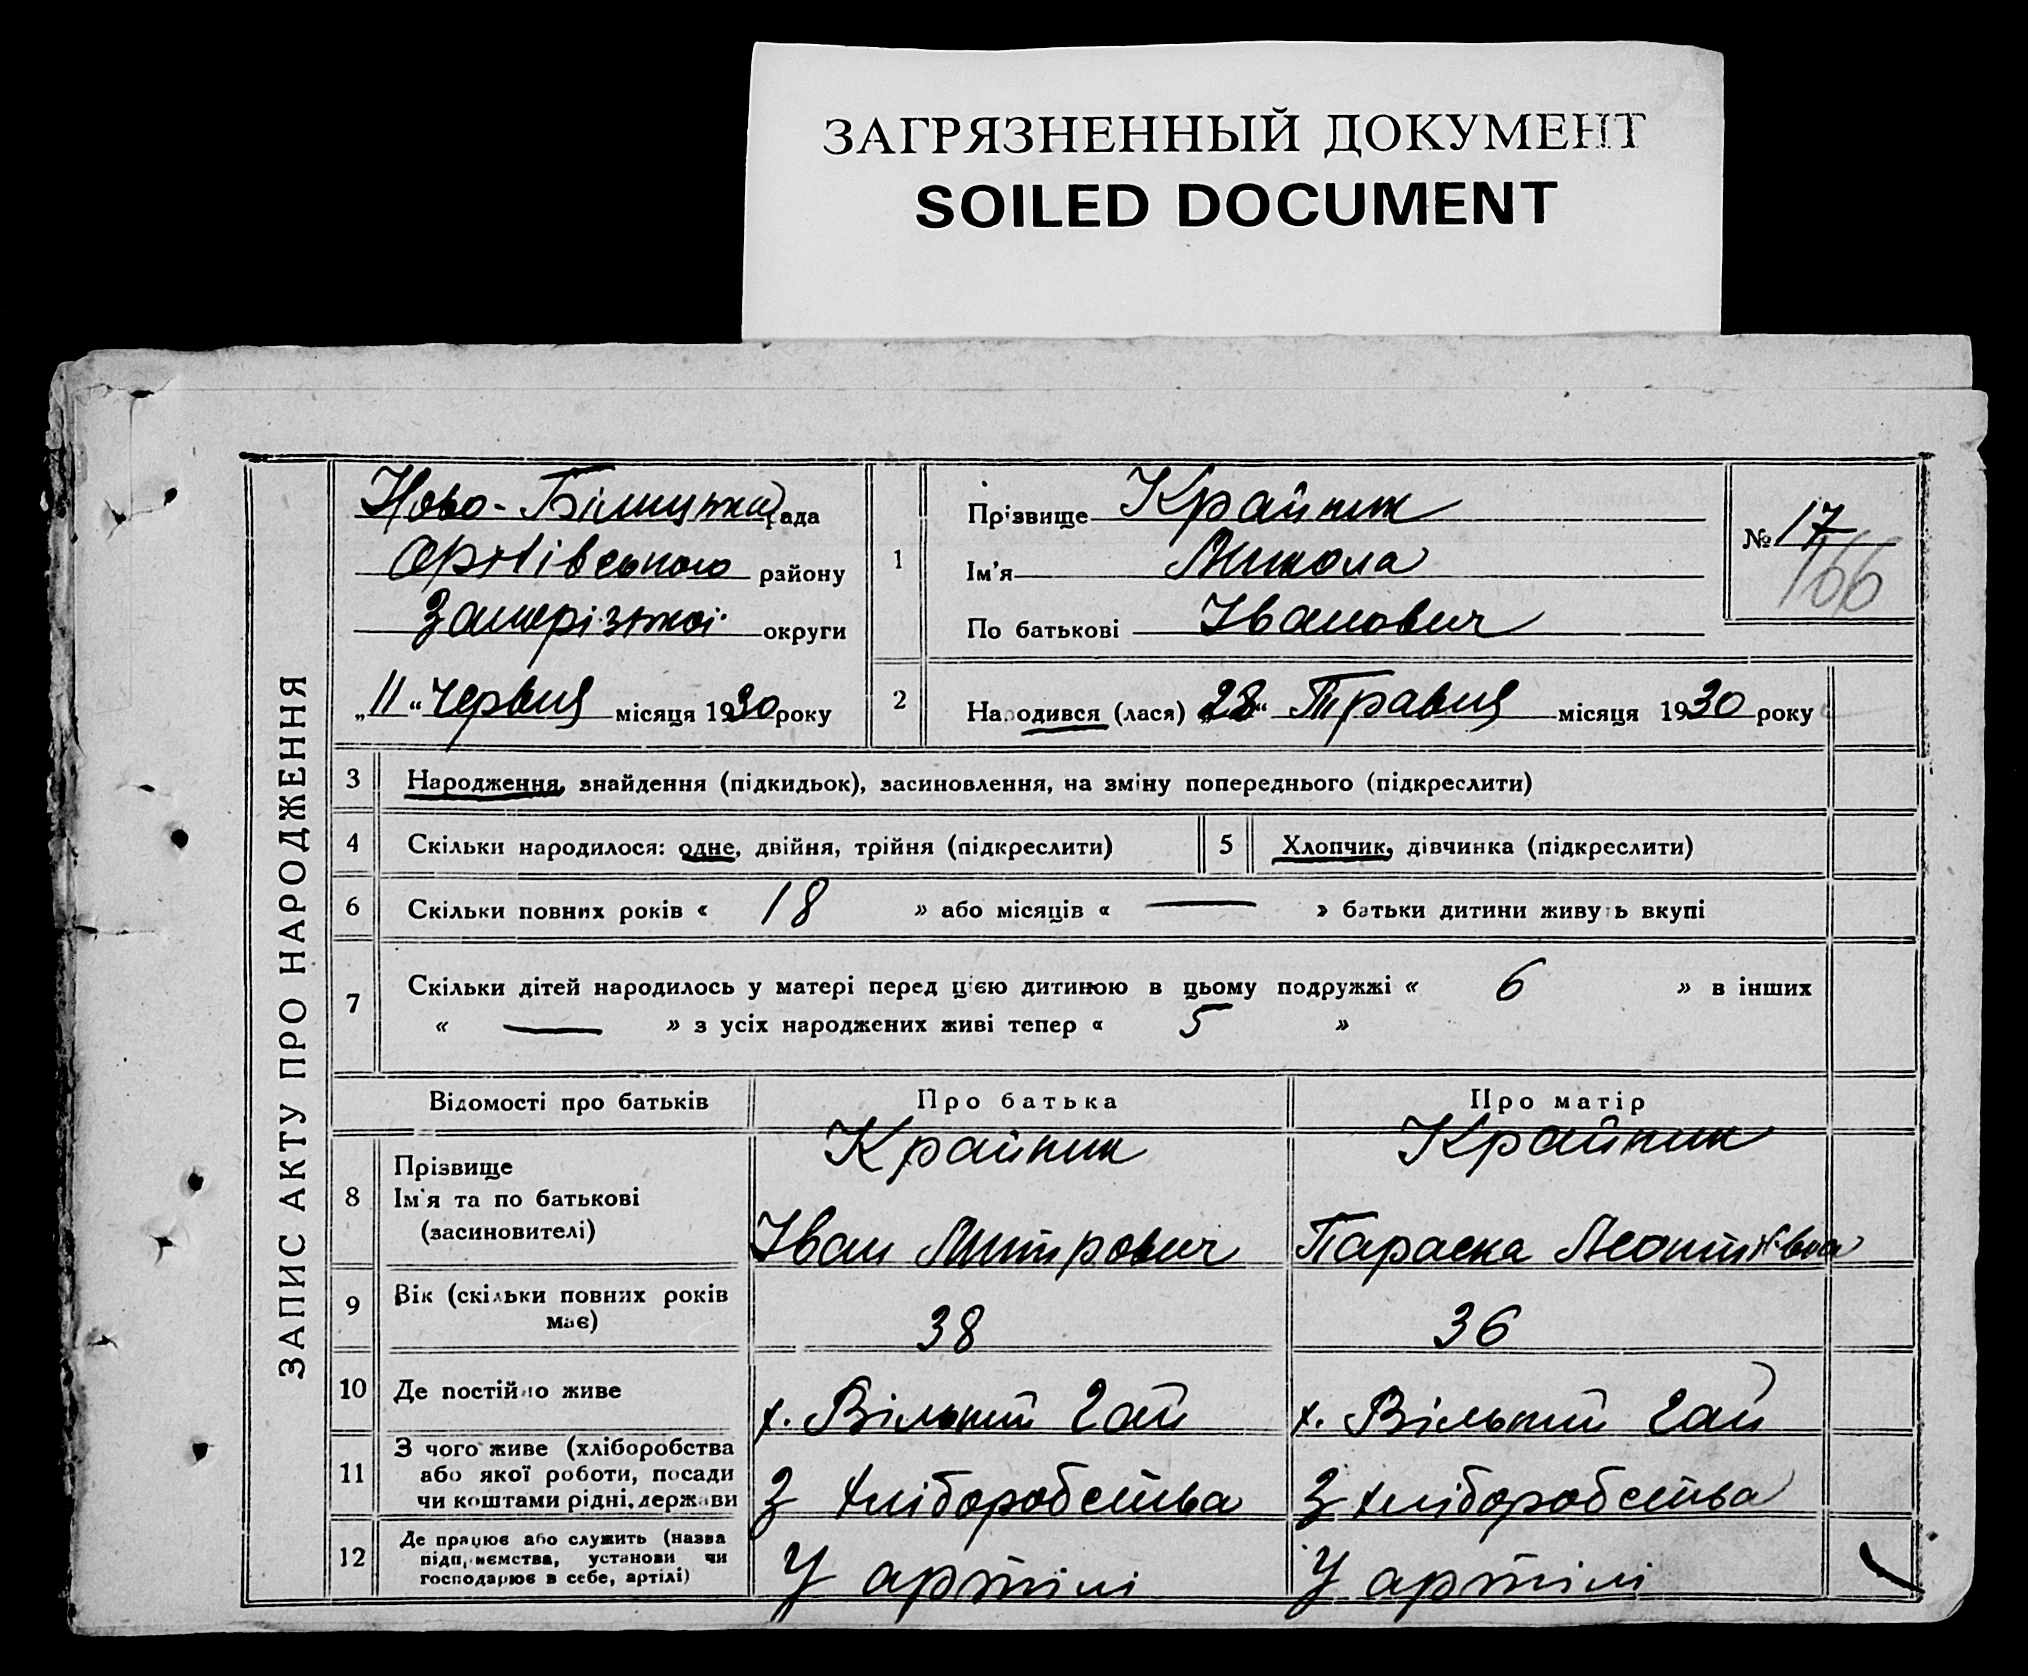 ЗАГРЯЗНЕННЫЙ ДОКУМЕНТ
SOILED DOCUMENT
ЗАПИС АКТУ ПРО НАРОДЖЕННЯ
Ново-Білицька рада
району
Запорізької округи
„11“ Червця місяця 1930 року
1
Прізвище Крайник
Ім'я Микола
По батькові Іванович
№ 17
166
2
Народився (лася) „28“ Травця місяця 1930 року
3 Народження, знайдення (підкидьок), засиновлення, на зміну попереднього (підкреслити)
4 Скільки народилося: одне, двійня, трійня (підкреслити) 5 Хлопчик, дівчинка (підкреслити)
6 Скільки повних років « 18 » або місяців « — » батьки дитини живуть вкупі
7 Скільки дітей народилось у матері перед цією дитиною в цьому подружжі « 6 » в інших
« — » з усіх народжених живі тепер « 5 »
Відомості про батьків Про батька Про матір
8 Прізвище Крайник Крайник
Ім'я та по батькові
(засиновителі) Іван Митрович Параска
9 Вік (скільки повних років
має) 38 36
10 Де постійно живе х. Вільний Гай х. Вільний Гай
11 З чого живе (хліборобства
або якої роботи, посади
чи коштами рідні, держави З хліборобства З хліборобства
12 Де працює або служить (назва
підприємства, установи чи
господарює в себе, артілі) У артілі У артілі